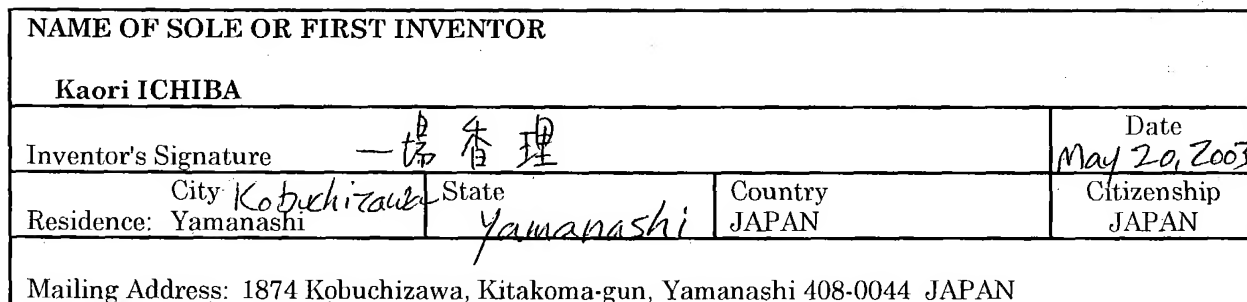 NAME OF SOLE OR FIRST INVENTOR
Kaori ICHIBA
Inventor's Signature 一場香理
Date
May 20, 2003
City Kobuchizawa
Residence: Yamanashi
State
Yamanashi
Country
JAPAN
Citizenship
JAPAN
Mailing Address: 1874 Kobuchizawa, Kitakoma-gun, Yamanashi 408-0044 JAPAN